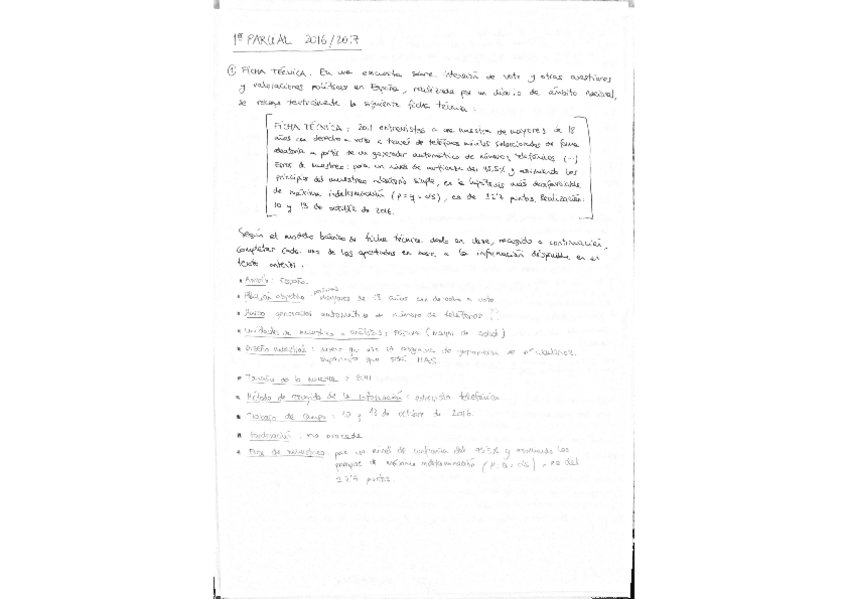 1er PARCIAL 2016/2017
① FICHA TÉCNICA. En una encuesta sobre intención de voto y otras cuestiones
y valoraciones políticas en España, realizada por un diario de ámbito nacional,
se recoge textualmente la siguiente ficha técnica:
FICHA TÉCNICA: entrevistas a una muestra de mayores de 18
años con derecho a voto a través de teléfonos móviles seleccionados de forma
aleatoria a partir de un generador automático de números telefónicos (...)
Error de muestreo: para un nivel de confianza del 95.5% y asumiendo los
principios del muestreo aleatorio simple, en la hipótesis más desfavorable
de máxima indeterminación (p = q = ), es de puntos. Realización:
10 y 13 de octubre de 2016.
Según el modelo básico de ficha técnica dado en clase, recogido a continuación,
completar cada uno de los apartados en base a la información disponible en el
texto anterior.
• Ámbito: España
• Población objetivo: mayores de 18 años con derecho a voto
• Marco: generador automático de número de teléfonos
• Unidades de muestreo o análisis: persona (mayor de edad)
• Diseño muestral: que use el de de nº
que MAS
• Tamaño de la muestra:
• Método de recogida de la información: entrevista telefónica
• Trabajo de campo: 10 y 13 de octubre de 2016.
• Ponderación: no procede
• Error de muestreo: para un nivel de confianza del 95.5% y asumiendo los
de máxima indeterminación (p = q = ), es del
puntos.